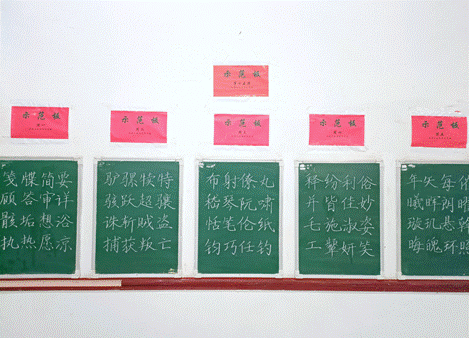 示范板
示范板
示范板
示范板
示范板
笺牒简要
顾答审详
骸垢想浴
执热愿凉
驴骡犊特
骇跃超骧
诛斩贼盗
捕获叛亡
布射僚丸
嵇琴阮啸
恬笔伦纸
钧巧任钓
释纷利俗
并皆佳妙
毛施淑姿
工颦妍笑
年矢每
曦晖朗
璇玑悬斡
晦魄环照